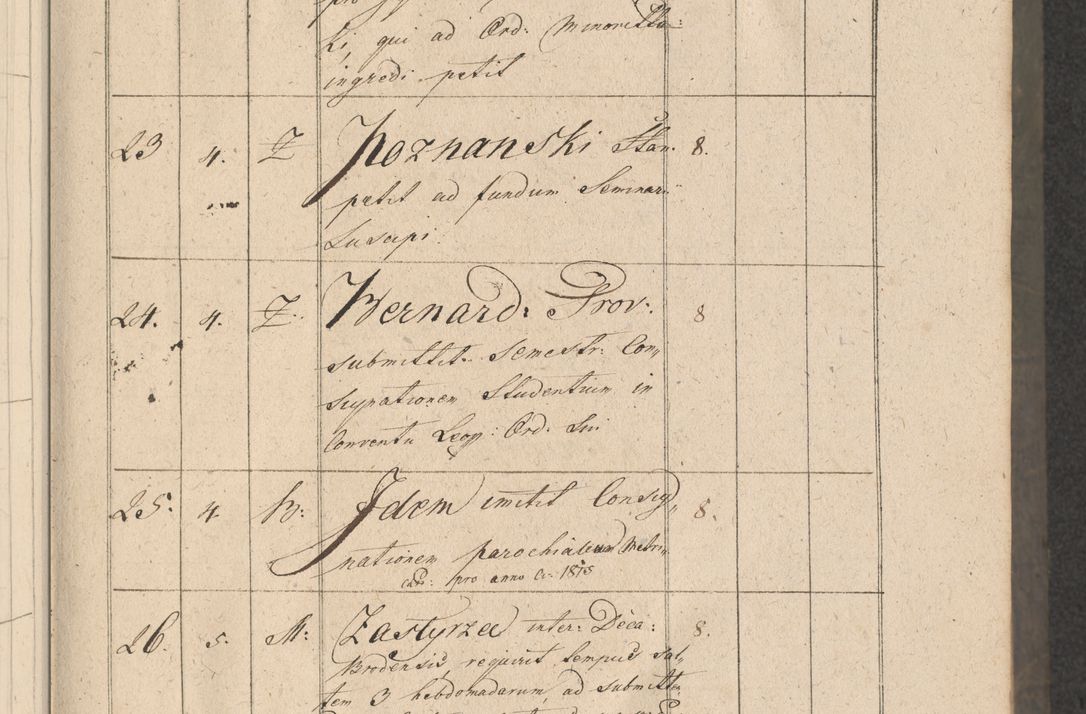 ki, qui ad Ord: Minoritta:
ingredi petit
23 4. Z Poznanski Stan. 8.
petit ad fundum Seminarii
Suscipi.
24. 4. Z. Bernard: Prov: 8
submittit semestr: Con„
signationem Studentium in
Conventu Leop: Ord: Sui
25. 4 B: Idem imitit Consig„ 8.
nationem parochialium Metri„
cas: pro anno C. 1818
26. 5. M: Zastyrzec inter: Deca: 8.
Brodensis, requirit tempus sal„
tem 3 hebdomadarum, ad submitten